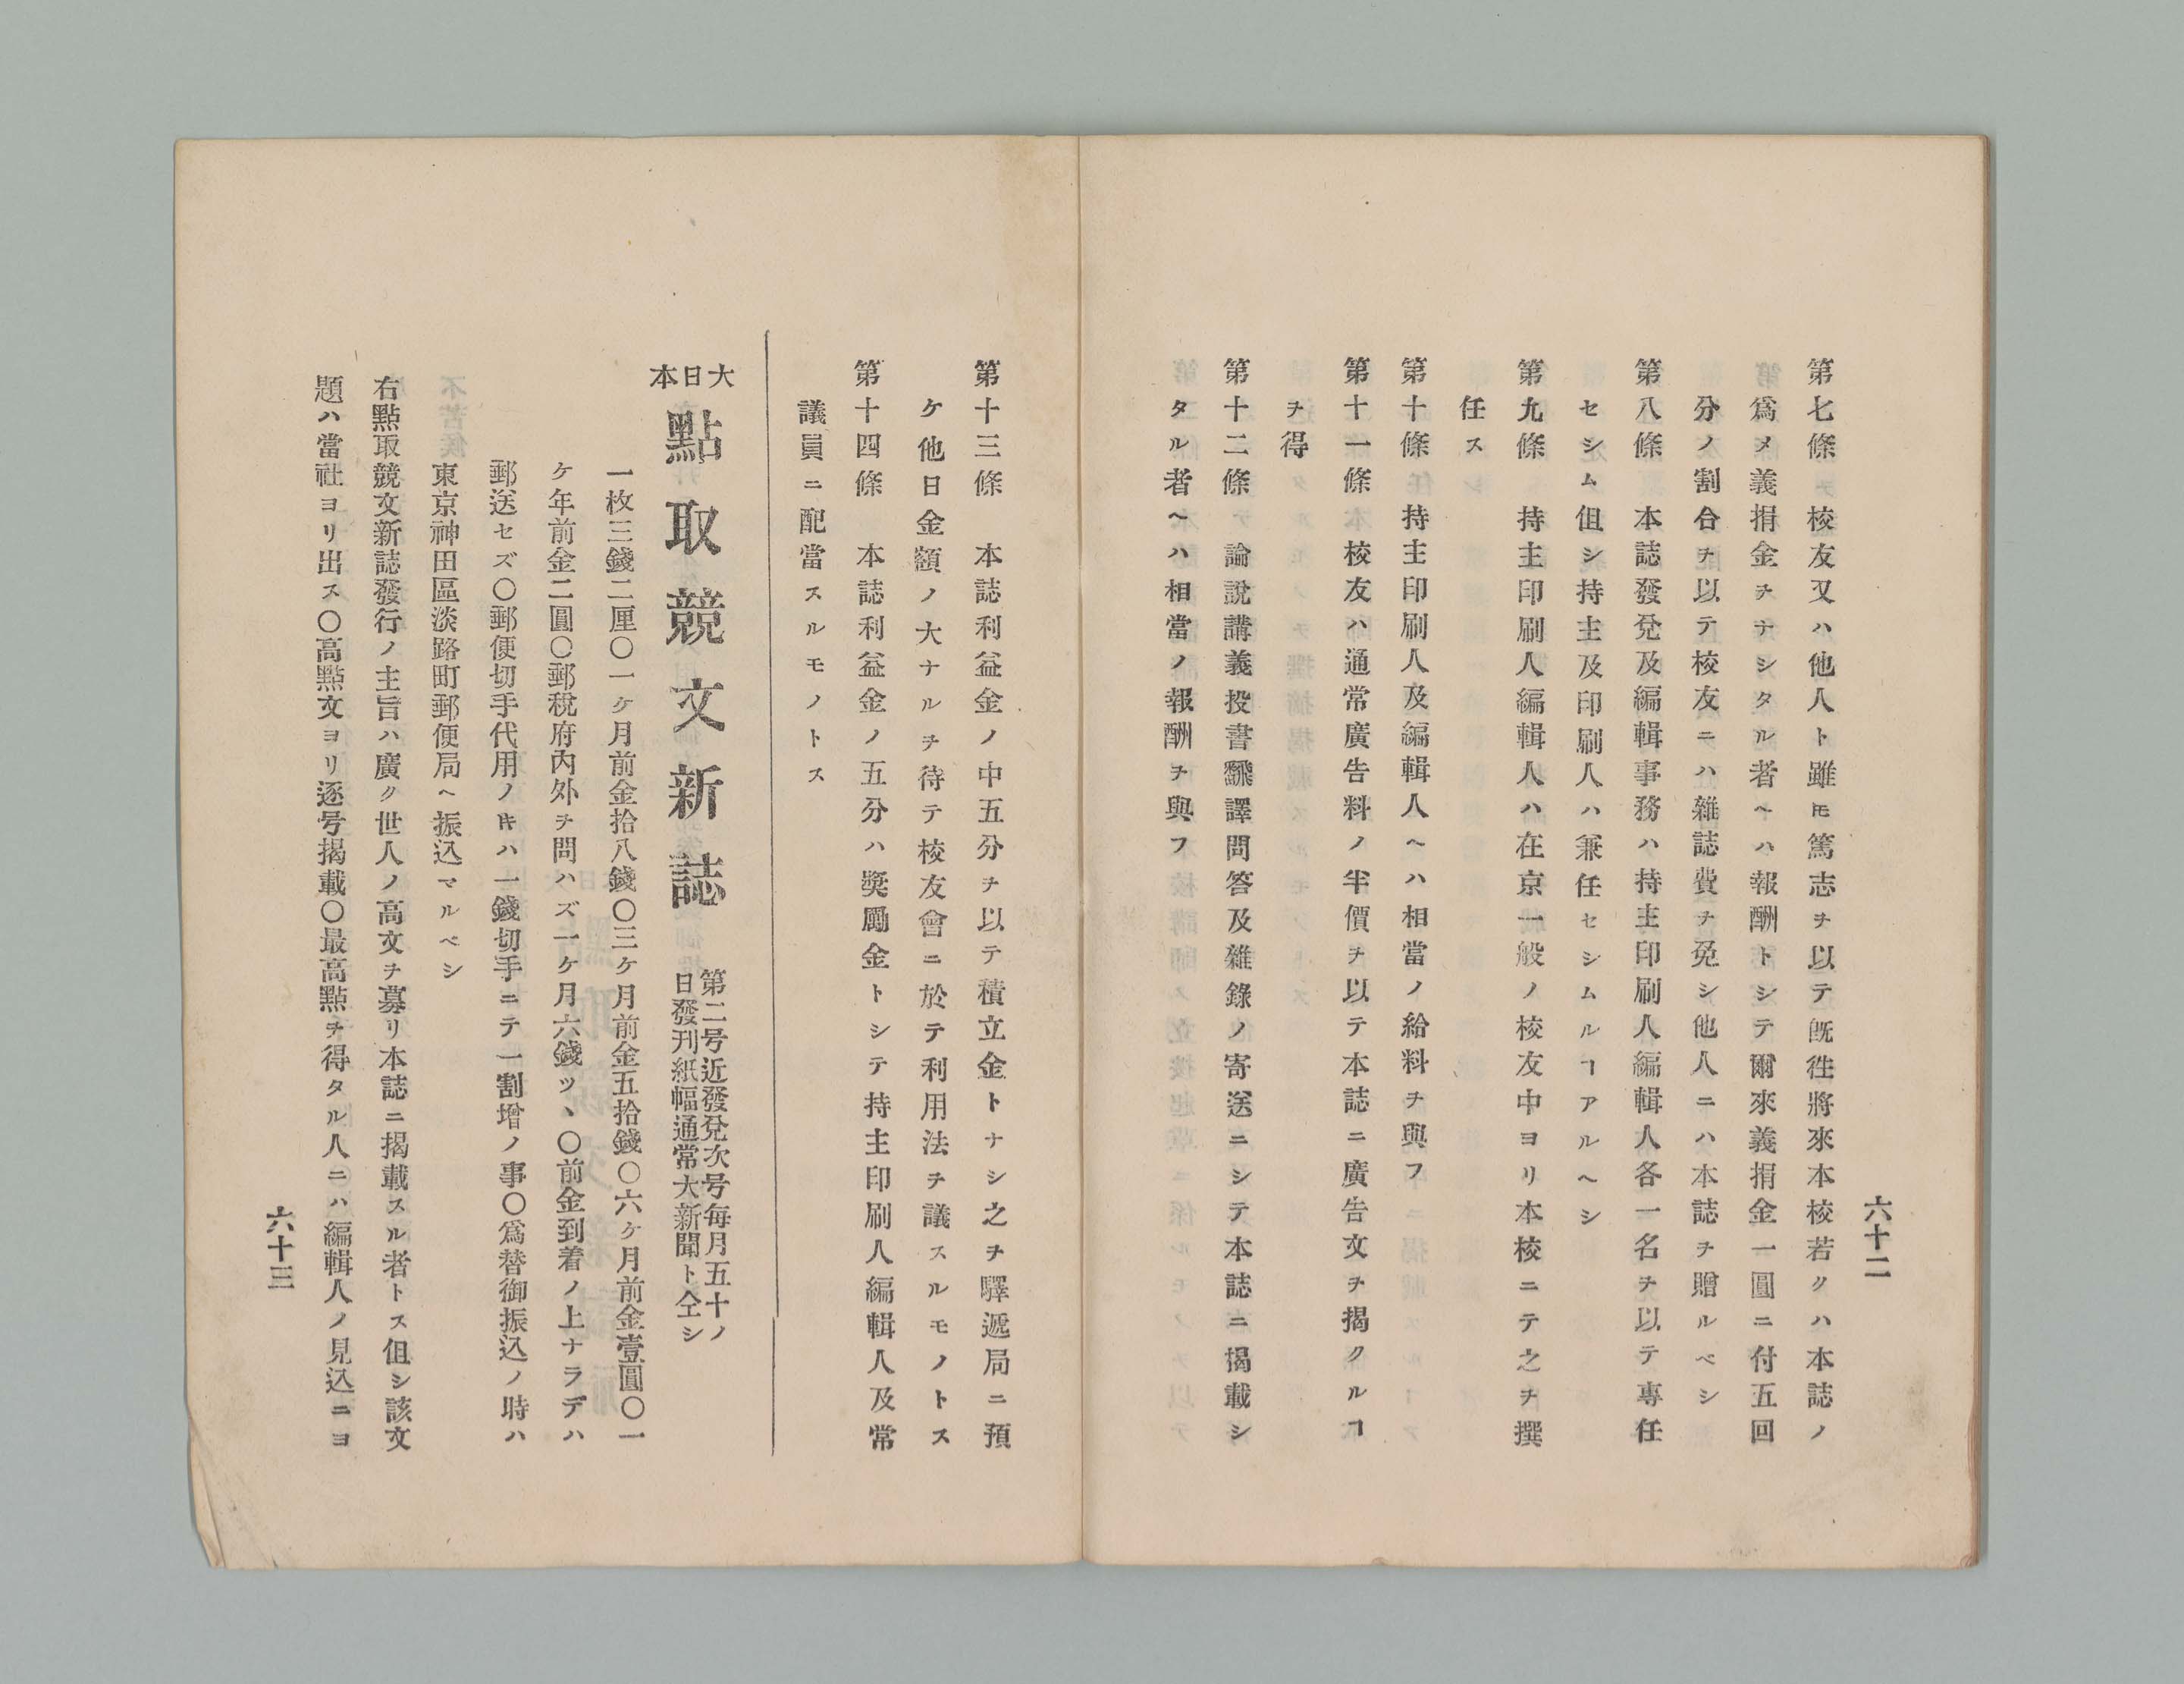 六十二
第七條校友又ハ他人ト雖𪜈篤志ヲ以テ既徃將來本校若クハ本誌ノ
爲メ義捐金ヲナシタル者ヘハ報酬トシテ爾來義捐金一圓ニ付五回
分ノ割合ヲ以テ校友ニハ雜誌費ヲ免シ他人ニハ本誌ヲ贈ルベシ
第八條 本誌發兌及編輯事務ハ持主印刷人編輯人各一名ヲ以テ專任
セシム伹シ持主及印刷人ハ兼任セシムルヿアルヘシ
第九條 持主印刷人編輯人ハ在京一般ノ校友中ヨリ本校ニテ之ヲ撰
任ス
第十條 持主印刷人及編輯人ヘハ相當ノ給料ヲ與フ
第十一條 本校友ハ通常廣告料ノ半價ヲ以テ本誌ニ廣告文ヲ揭クルヿ
ヲ得
第十二條 論說講義投書飜譯問答及雜錄ノ寄送ニシテ本誌ニ揭載シ
タル者ヘハ相當ノ報酬ヲ與フ
第十三條 本誌利益金ノ中五分ヲ以テ積立金トナシ之ヲ驛遞局ニ預
ケ他日金額ノ大ナルヲ待テ校友會ニ於テ利用法ヲ議スルモノトス
第十四條 本誌利益金ノ五分ハ奬勵金トシテ持主印刷人編輯人及常
議員ニ配當スルモノトス
大日本
點取競文新誌
第二号近發兌次号毎月五十ノ
日發刊紙幅通常大新聞ト仝シ
一枚三錢二厘〇一ケ月前金拾八錢〇三ケ月前金五拾錢〇六ケ月前金壹圓〇一
ケ年前金二圓〇郵稅府內外ヲ問ハズ一ケ月六錢ツヽ〇前金到着ノ上ナラデハ
郵送セズ〇郵便切手代用ノ𪜈ハ一錢切手ニテ一割增ノ事〇爲替御振込ノ時ハ
東京神田區淡路町郵便局ヘ振込マルベシ
右點取競文新誌發行ノ主旨ハ廣ク世人ノ高文ヲ募リ本誌ニ揭載スル者トス伹シ該文
題ハ當社ヨリ出ス〇高點文ヨリ逐号揭載〇最高點ヲ得タル人ニハ編輯人ノ見込ニヨ
六十三